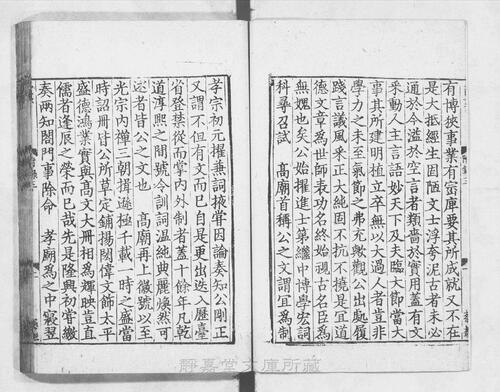 有博狹事業有窳庳要其所成就又不在
是大抵經生固陋文士浮夸泥古者未必
通於今溢於空言者類嗇於實用蓋有文
采動人主言語妙天下及夫臨大節當大
事其所建明植立卒無以大過人者豈非
學力之未至氣節之弗充歟觀公出處履
踐言議風采正大純固不抗不撓是宜道
德文章為世師表功名終始視古名臣為
無媿也矣公始擢進士第繼中博學宏詞
科尋召試　高廟首稱公之文謂宜為制
孝宗初元擢兼詞掖嘗因論奏知公剛正
又謂不但有文而已自是更出迭入歷臺
省登禁從而掌內外制者蓋十餘年凡乾
道淳熙之間號令訓詞溫純典麗煥然可
述者皆公之文也　高廟再上徽號以至
光宗內禪三朝揖遜極千載一時之盛當
時詔冊皆公所草定鋪揚閎偉文飾太平
盛德鴻業實與高文大冊相為輝映豈直
儒者逢辰之榮而已哉先是隆興初嘗繳
奏兩知閤門事除命　孝廟為之中寢翌
靜嘉堂文庫所藏